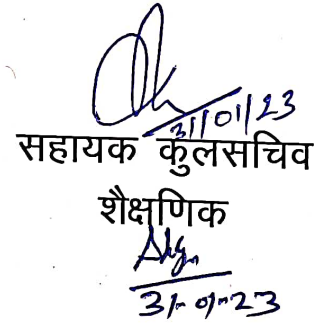 31/01/23
सहायक कुलसचिव
शैक्षणिक
31-01-23